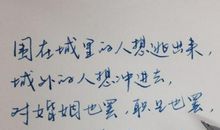 围在城里的人想逃出来，
城外的人想冲进去，
对婚姻也罢，职业也罢